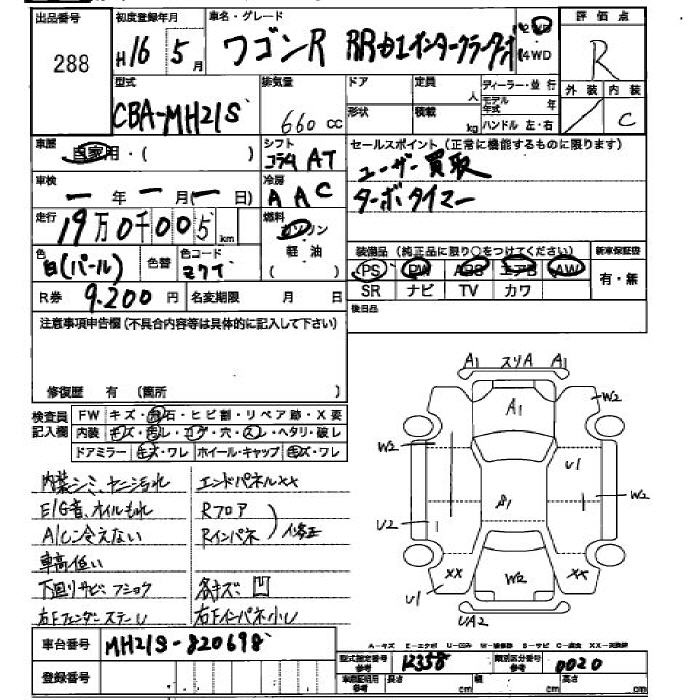 出品番号 初度登録年月 車名・グレード 評価点
288 H16 5月 ワゴンR 2WD 4WD R
型式 排気量 ドア 定員 人 ディーラー・並行 外装 内装
CBA-MH21S 660cc 形状 積載 kg モデル年式 年 ハンドル 左・右 C
車歴 自家用・( ) シフト コラムAT セールスポイント(正常に機能するものに限ります)
ユーザー買取
車検 ー年ー月(ー日) 冷房 AAC
ターボタイマー
走行 19万0千005km 燃料 ガソリン 軽・油 ( )
色 白(パール) 色替 色コード Z7T
装備品(純正品に限り○をつけてください) 新車保証書
PS PW ABS エアB AW 有・無
SR ナビ TV カワ
R券 9.200円 名変期限 月 日
後日品
注意事項申告欄(不具合内容等は具体的に記入して下さい)
修復歴 有 (箇所 )
検査員記入欄 FW キズ・飛石・ヒビ割・リペア跡・X要
内装 キズ・汚レ・コゲ・穴・スレ・ヘタリ・破レ
ドアミラー キズ・ワレ ホイール・キャップ キズ・ワレ
内装シミ、ヤニ汚れ エンドパネルXX
E/G音、オイルもれ Rフロア
A/C冷えない Rインパネ 修正
車高低い
下回りサビ、フショク 各キズ凹
右Fフェンダーステーし 右Fインパネ小し
A1 スリA A1
W2
A1
W2 U1
W2
S1
U2
XX W2 XX
U1
UA2
車台番号 MH21S-820698
A-キズ E-エクボ U-凹み W-補修跡 S-サビ C-腐食 XX-交換済
型式指定番号 参考 12358 類別区分番号 参考 0020
登録番号 車庫証明用 参考 長さ cm 幅 cm 高さ cm